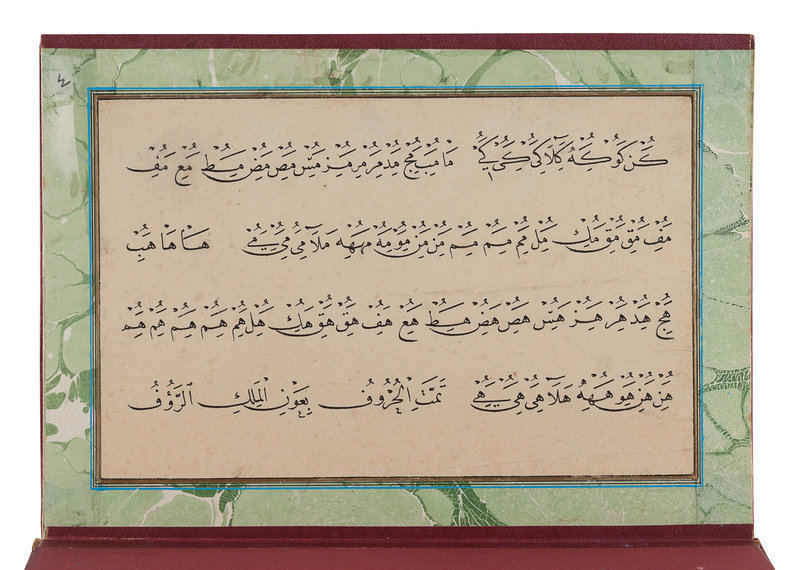 ٤
كن كو كه كلا كى كى كے ما مب مج مد مر مر مز مس مص مض مط مع مف
مف مق مق مك مل مم مم مم من من مو مه مهه ملا مى مى مے ها ها هب
هج هد هر هز هس هص هض هط هع هف هق هق هك هل هم هم هم هم هم
هن هن هو ههه هلا هى هى هے تَمَّتِ الْحُرُوفُ بِعَوْنِ الْمَلِكِ الرَّؤُفُ